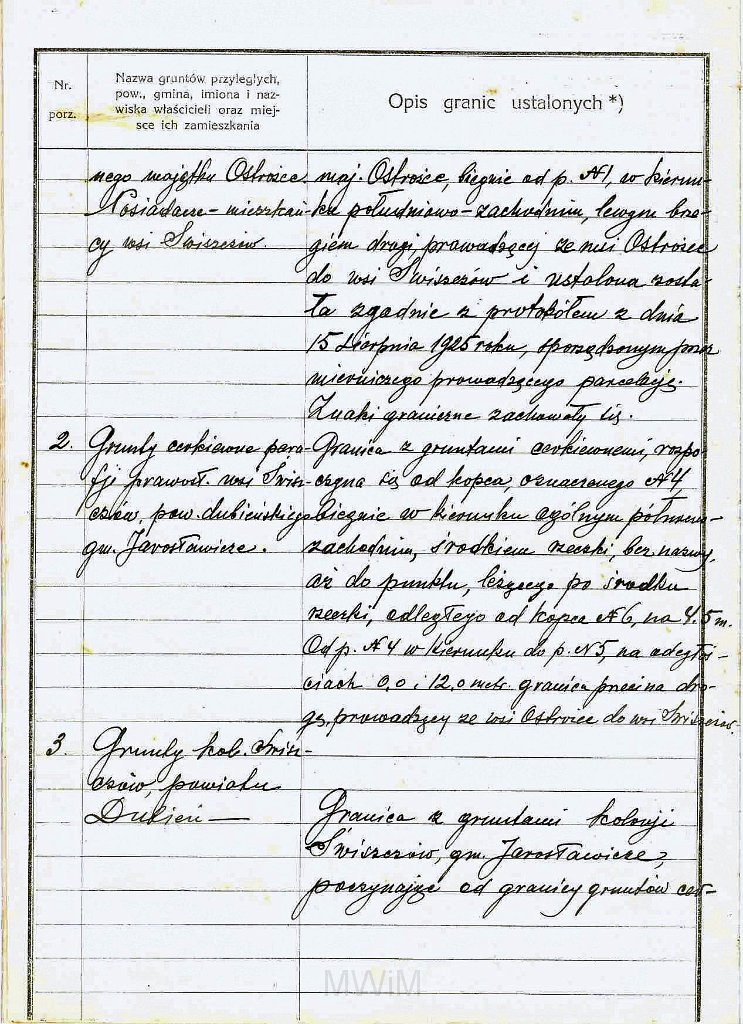 Nr.
porz.
Nazwa gruntów przyległych,
pow., gmina, imiona i naz-
wiska właścicieli oraz miej-
sce ich zamieszkania
Opis granic ustalonych *)
nego majątku Ostrożec.
Posiadacze - mieszkań-
cy wsi Świszczów.
maj. Ostrożec, biegnie od p. N1, w kierun-
ku południowo-zachodnim, lewym brze-
giem drogi prowadzącej ze wsi Ostrożec
do wsi Świszczów i ustalona zosta-
ła zgodnie z protokółem z dnia
15 sierpnia 1925 roku, sporządzonym przez
mierniczego prowadzącego parcelację.
Znaki graniczne zachowały się.
2.
Grunty cerkiewne para-
fji prawosł. wsi Świsz-
czów, pow. dubieńskiego
gm. Jarosławicze.
Granica z gruntami cerkiewnemi, rozpo-
czyna się od kopca, oznaczonego N4
biegnie w kierunku ogólnym północno-
zachodnim, środkiem rzeczki, bez nazwy,
aż do punktu, leżącego po środku
rzeczki, odległego od kopca N6, na 4.5 m.
Od p. N4 w kierunku do p. N5, na odegłoś-
ciach 0,0 i 12,0 metr. granica przecina dro-
gę, prowadzącą ze wsi Ostrożec do wsi Świszczów.
3.
Grunty kol. Świsz-
czów, powiatu
Dubień-
Granica z gruntami kolonji
Świszczów, gm. Jarosławicze,
poczynając od granicy gruntów cer-
MWiM